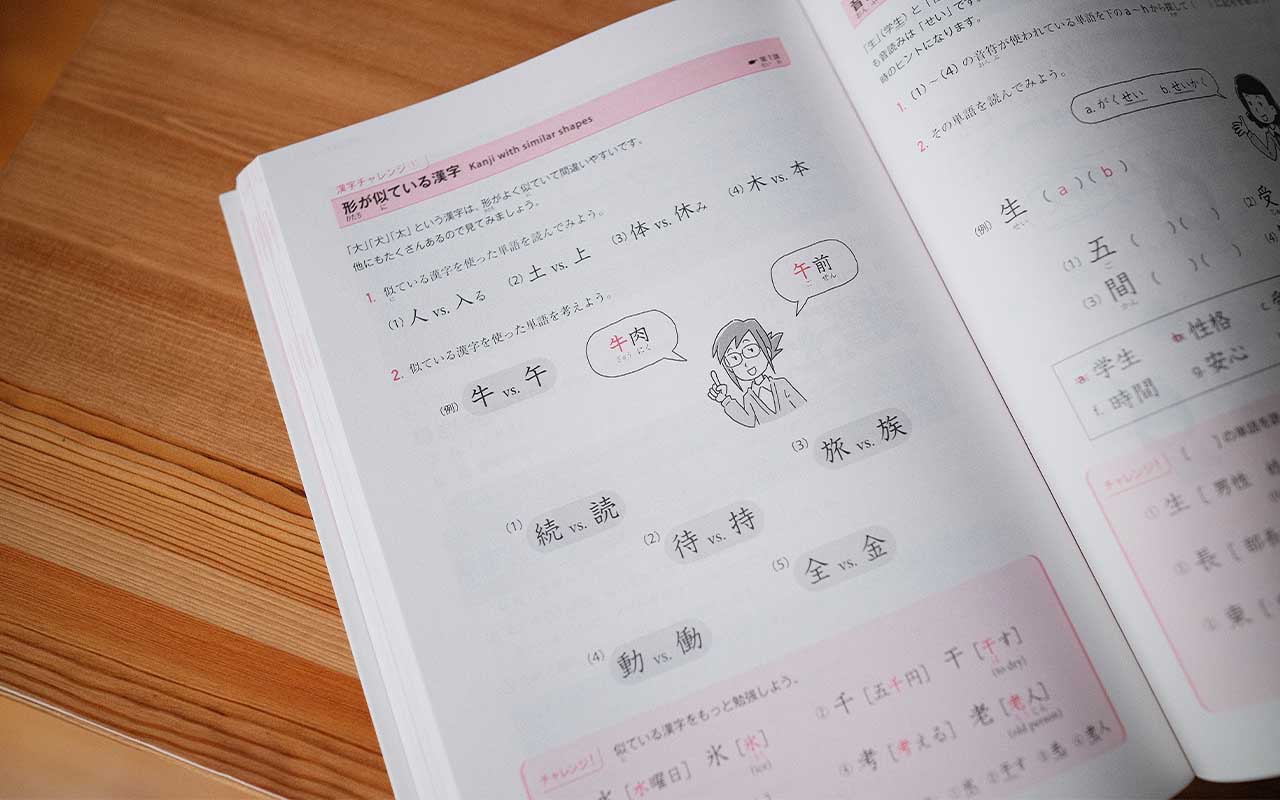 ☛第1課
だい か
漢字チャレンジ!
形が似ている漢字 Kanji with similar shapes
かたち に
「大」「犬」「太」という漢字は、形がよく似ていて間違いやすいです。
他にもたくさんあるので見てみましょう。
1. 似ている漢字を使った単語を読んでみよう。
(1) 人 vs. 入る (2) 土 vs. 上 (3) 体 vs. 休み (4) 木 vs. 本
2. 似ている漢字を使った単語を考えよう。
(例) 牛 vs. 午
牛肉
ぎゅうにく
午前
ごぜん
(1) 続 vs. 読
(2) 待 vs. 持
(3) 旅 vs. 族
(4) 動 vs. 働
(5) 全 vs. 金
チャレンジ! 似ている漢字をもっと勉強しよう。
[水曜日] 氷 [氷]
(ice)
② 千 [五千円] 干 [干す]
(to dry)
④ 考 [考える] 老 [老人]
(old person)
「生」(学生) と
も音読みは「せい」です
時のヒントになります。
1. (1)~(4) の音符が使われている単語を下のa~hから探して
2. その単語を読んでみよう。
a. がくせい b. せいかく
(例) 生 ( a )( b )
せい
(1) 五 ( )( )
ご
(2) 受
(3) 間 ( )( )
かん
(4)
a. 学生 b. 性格
f. 時間 g. 安心
チャレンジ! [ ] の単語を
① 生 [ 男性
② 長 [ 部長
③ 東 [